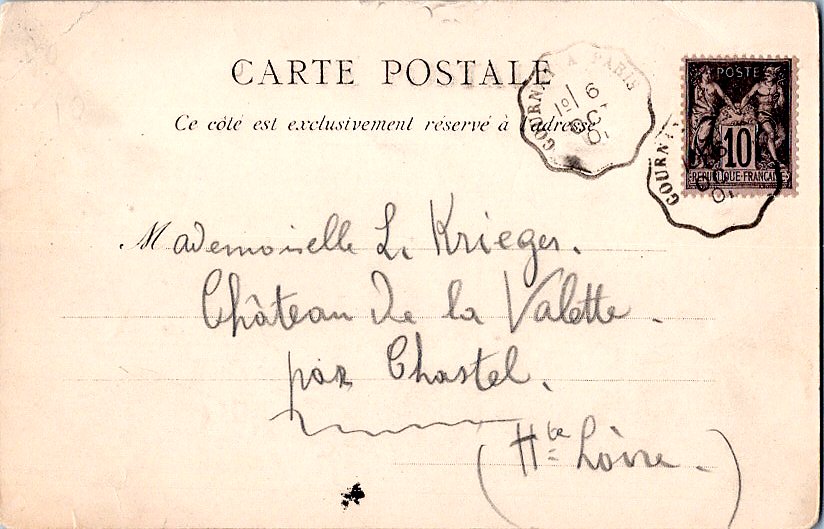 CARTE POSTALE
Ce côté est exclusivement réservé à l'adresse
GOURNAY A PARIS
6
OCT
01
POSTE
10
REPUBLIQUE FRANÇAISE
GOURN
01
Mademoiselle L. Krieger.
Château de la Valette.
par Chastel.
(Hte Loire.)